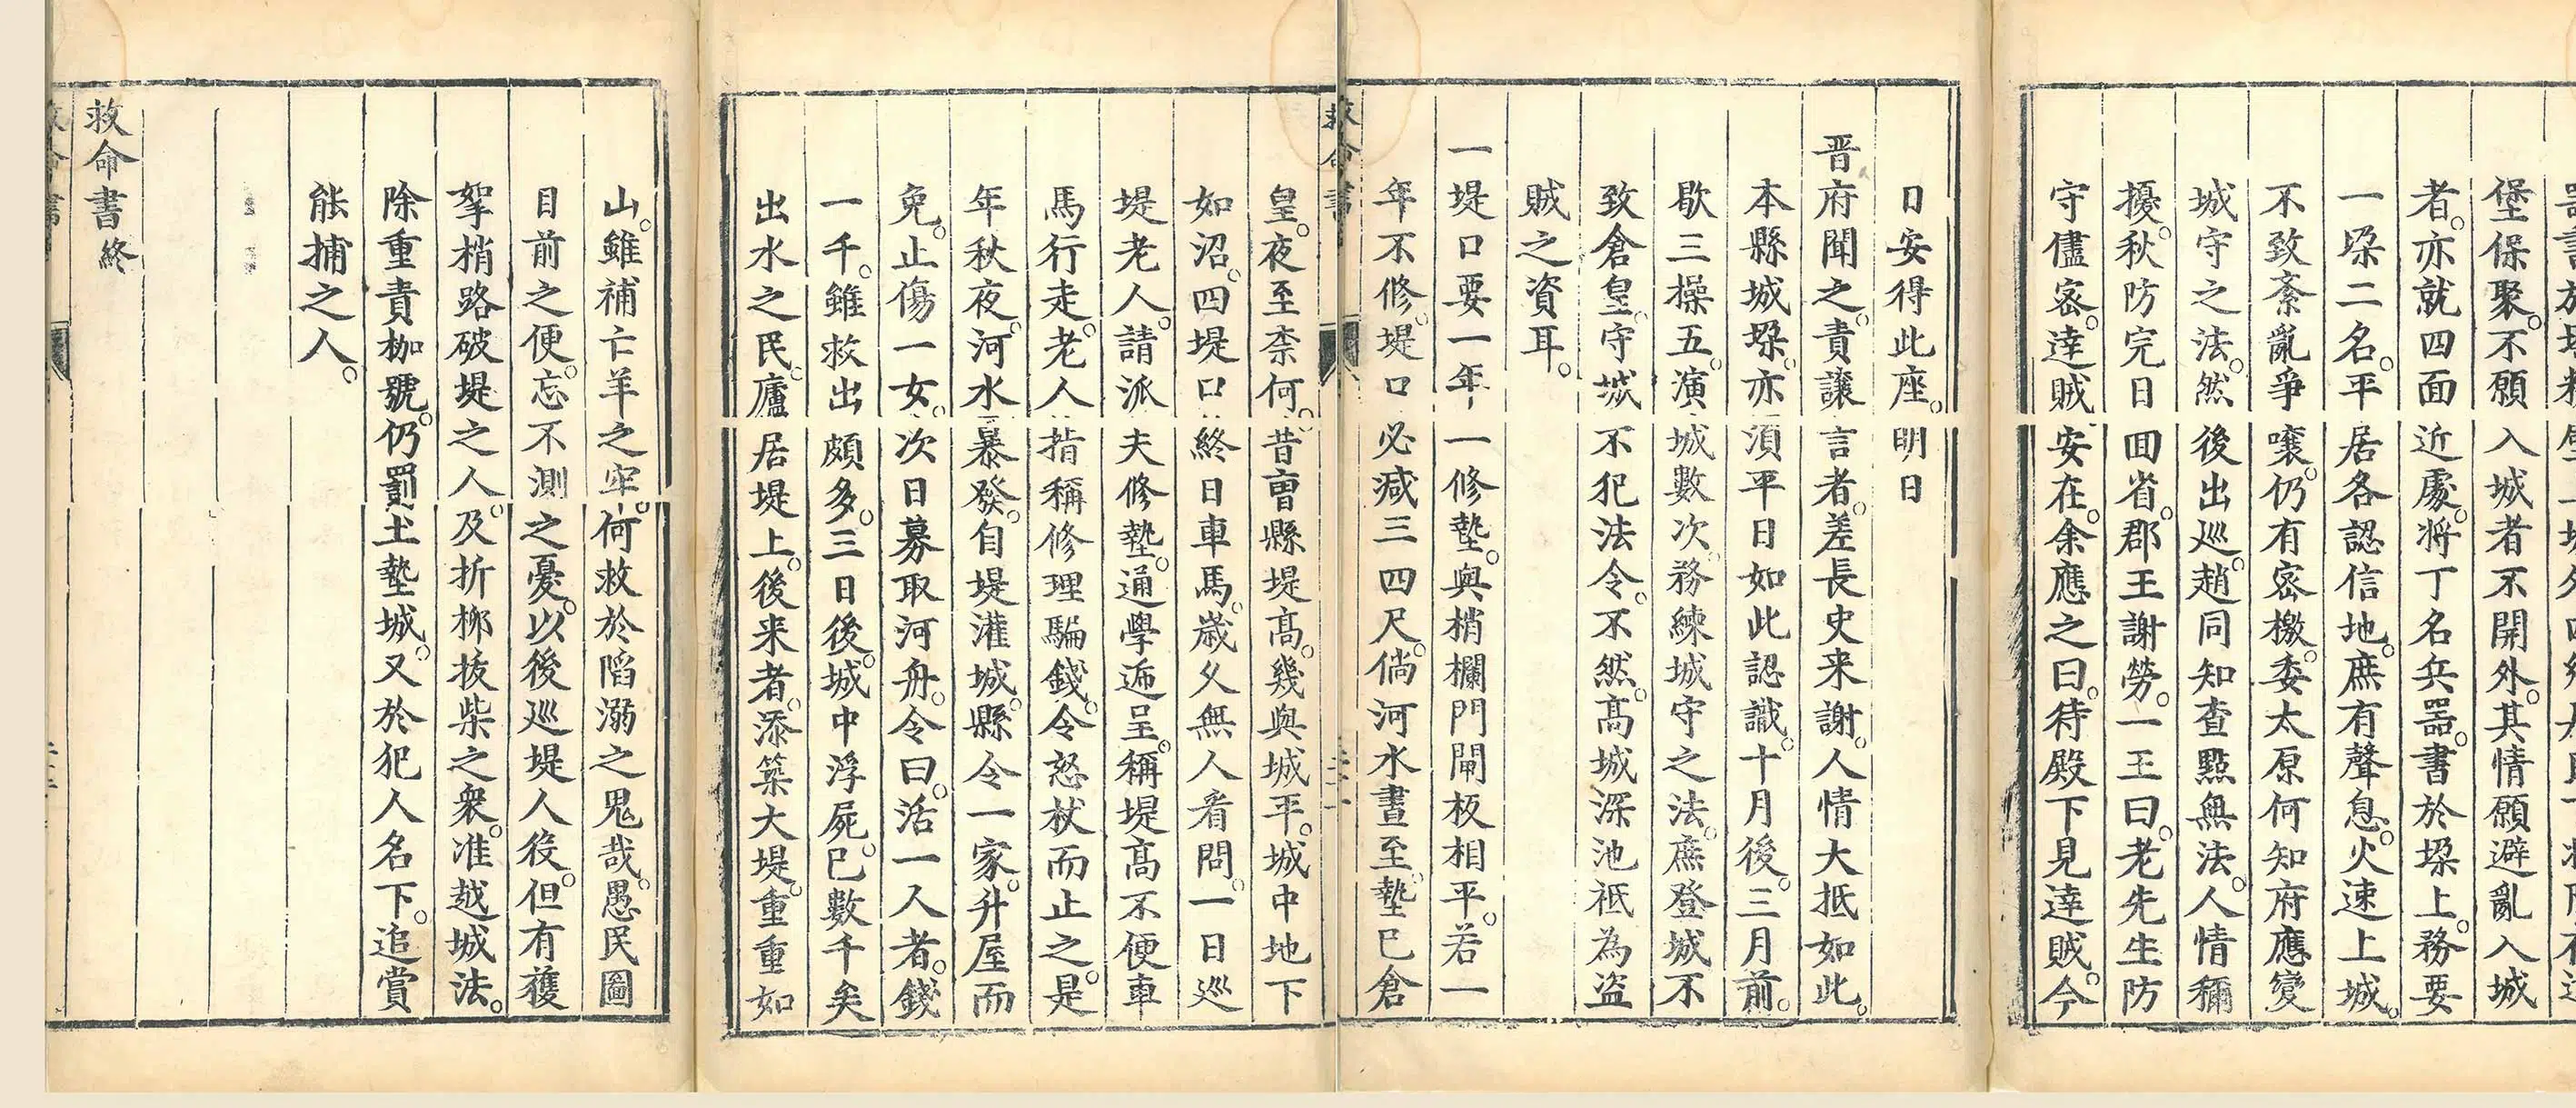 堡保聚不願入城者不開外其情願避亂入城
者亦就四面近處將丁名兵噐書於垜上務要
一垜二名平居各認信地庶有聲息火速上城
不致紊亂爭嚷仍有宻檄委太原何知府應變
城守之法然後出巡趙同知查㸃無法人情稱
擾秋防完日囬省郡王謝勞一王曰老先生防
守儘宻逹賊安在余應之曰待殿下見逹賊今
日安得此座明日
晋府聞之責讓言者差長史来謝人情大抵如此
本縣城垜亦湏平日如此認識十月後三月前
歇三操五演城數次務練城守之法庶登城不
致倉皇守城不犯法令不然髙城深池袛為盜
賊之資耳
一堤口要一年一修墊與梢欄門閘板相平若一
年不修堤口必减三四尺倘河水晝至墊已倉
救命書
皇夜至柰何昔曹縣堤髙幾與城平城中地下
如沼四堤口終日車馬歲久無人看問一日廵
堤老人請派夫修墊通學逓呈稱堤髙不便車
馬行走老人指稱修理騙錢令怒杖而止之是
年秋夜河水暴發自堤灌城縣令一家升屋而
免止傷一女次日募取河舟令曰活一人者錢
一千雖救出頗多三日後城中浮屍已數千矣
出水之民廬居堤上後来者添築大堤重重如
山雖補亡羊之牢何救於陷溺之鬼哉愚民圖
目前之便忘不測之憂以後廵堤人役但有獲
拏梢路破堤之人及折栁拔柴之衆准越城法
除重責枷號仍罰土墊城又於犯人名下追賞
能捕之人
救命書終